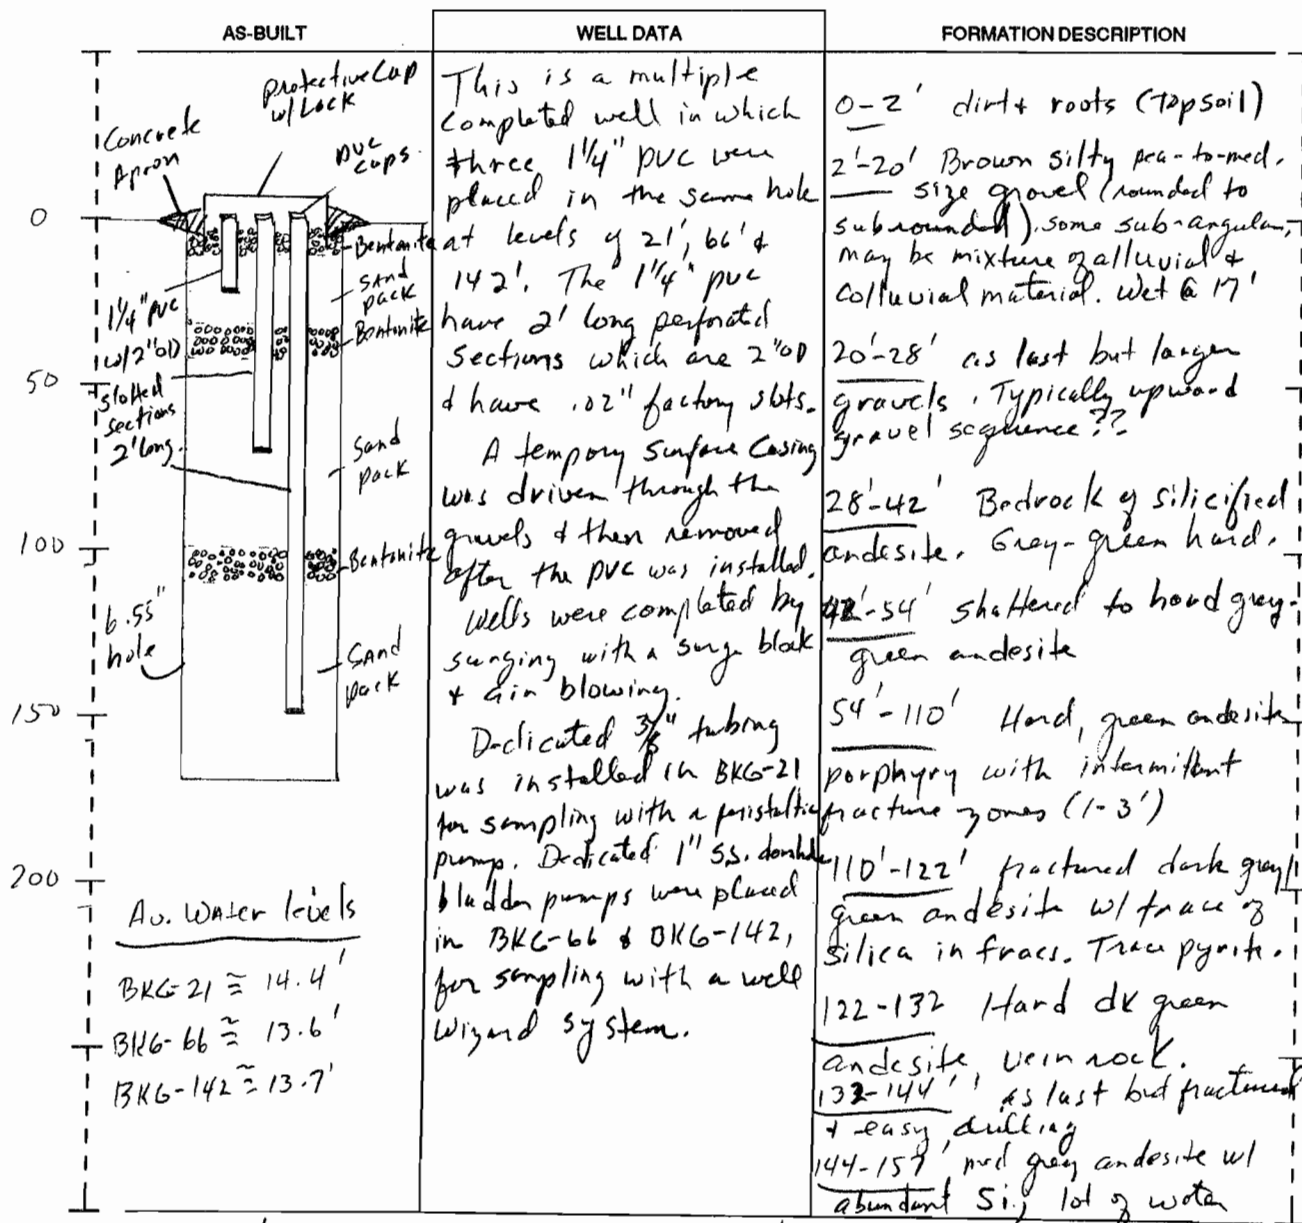 AS-BUILT
protective Cap
w/Lock
Concrete
Apron
PVC
Caps.
0
Bentonite
Sand
pack
1 1/4" PVC
Bentonite
w/2" OD
50
slotted
sections
2' long.
Sand
pack
100
Bentonite
6.55"
hole
Sand
pack
150
200
Av. Water levels
BKG-21 ≅ 14.4'
BKG-66 ≅ 13.6'
BKG-142 ≅ 13.7'
WELL DATA
This is a multiple
completed well in which
three 1 1/4" PVC were
placed in the same hole
at levels of 21', 66' &
142'. The 1 1/4" PVC
have 2' long perforated
sections which are 2" OD
& have .02" factory slots.
A tempory Surface Casing
was driven through the
gravels & then removed
after the PVC was installed.
Wells were completed by
surging with a surge block
& air blowing.
Dedicated 3/8" tubing
was installed in BKG-21
for sampling with a peristaltic
pump. Dedicated 1" S.S. double
bladder pumps were placed
in BKG-66 & BKG-142,
for sampling with a well
wizard system.
FORMATION DESCRIPTION
0-2' dirt & roots (topsoil)
2'-20' Brown silty pea-to-med.
size gravel (rounded to
subrounded), some sub-angular,
may be mixture of alluvial &
Colluvial material. Wet @ 17'
20'-28' as last but larger
gravels. Typically upward
gravel sequence??
28'-42' Bedrock of silicified
andesite. Grey-green hard.
42'-54' shattered to hard grey-
green andesite
54'-110' Hard, green andesite
porphyry with intermittent
fracture zones (1-3')
110'-122' fractured dark gray/
green andesite w/ trace of
silica in fracs. Trace pyrite.
122-132 Hard dk green
andesite, vein rock.
132-144' as last but fractured
& easy drilling
144-157' med grey andesite w/
abundant Si; lot of water